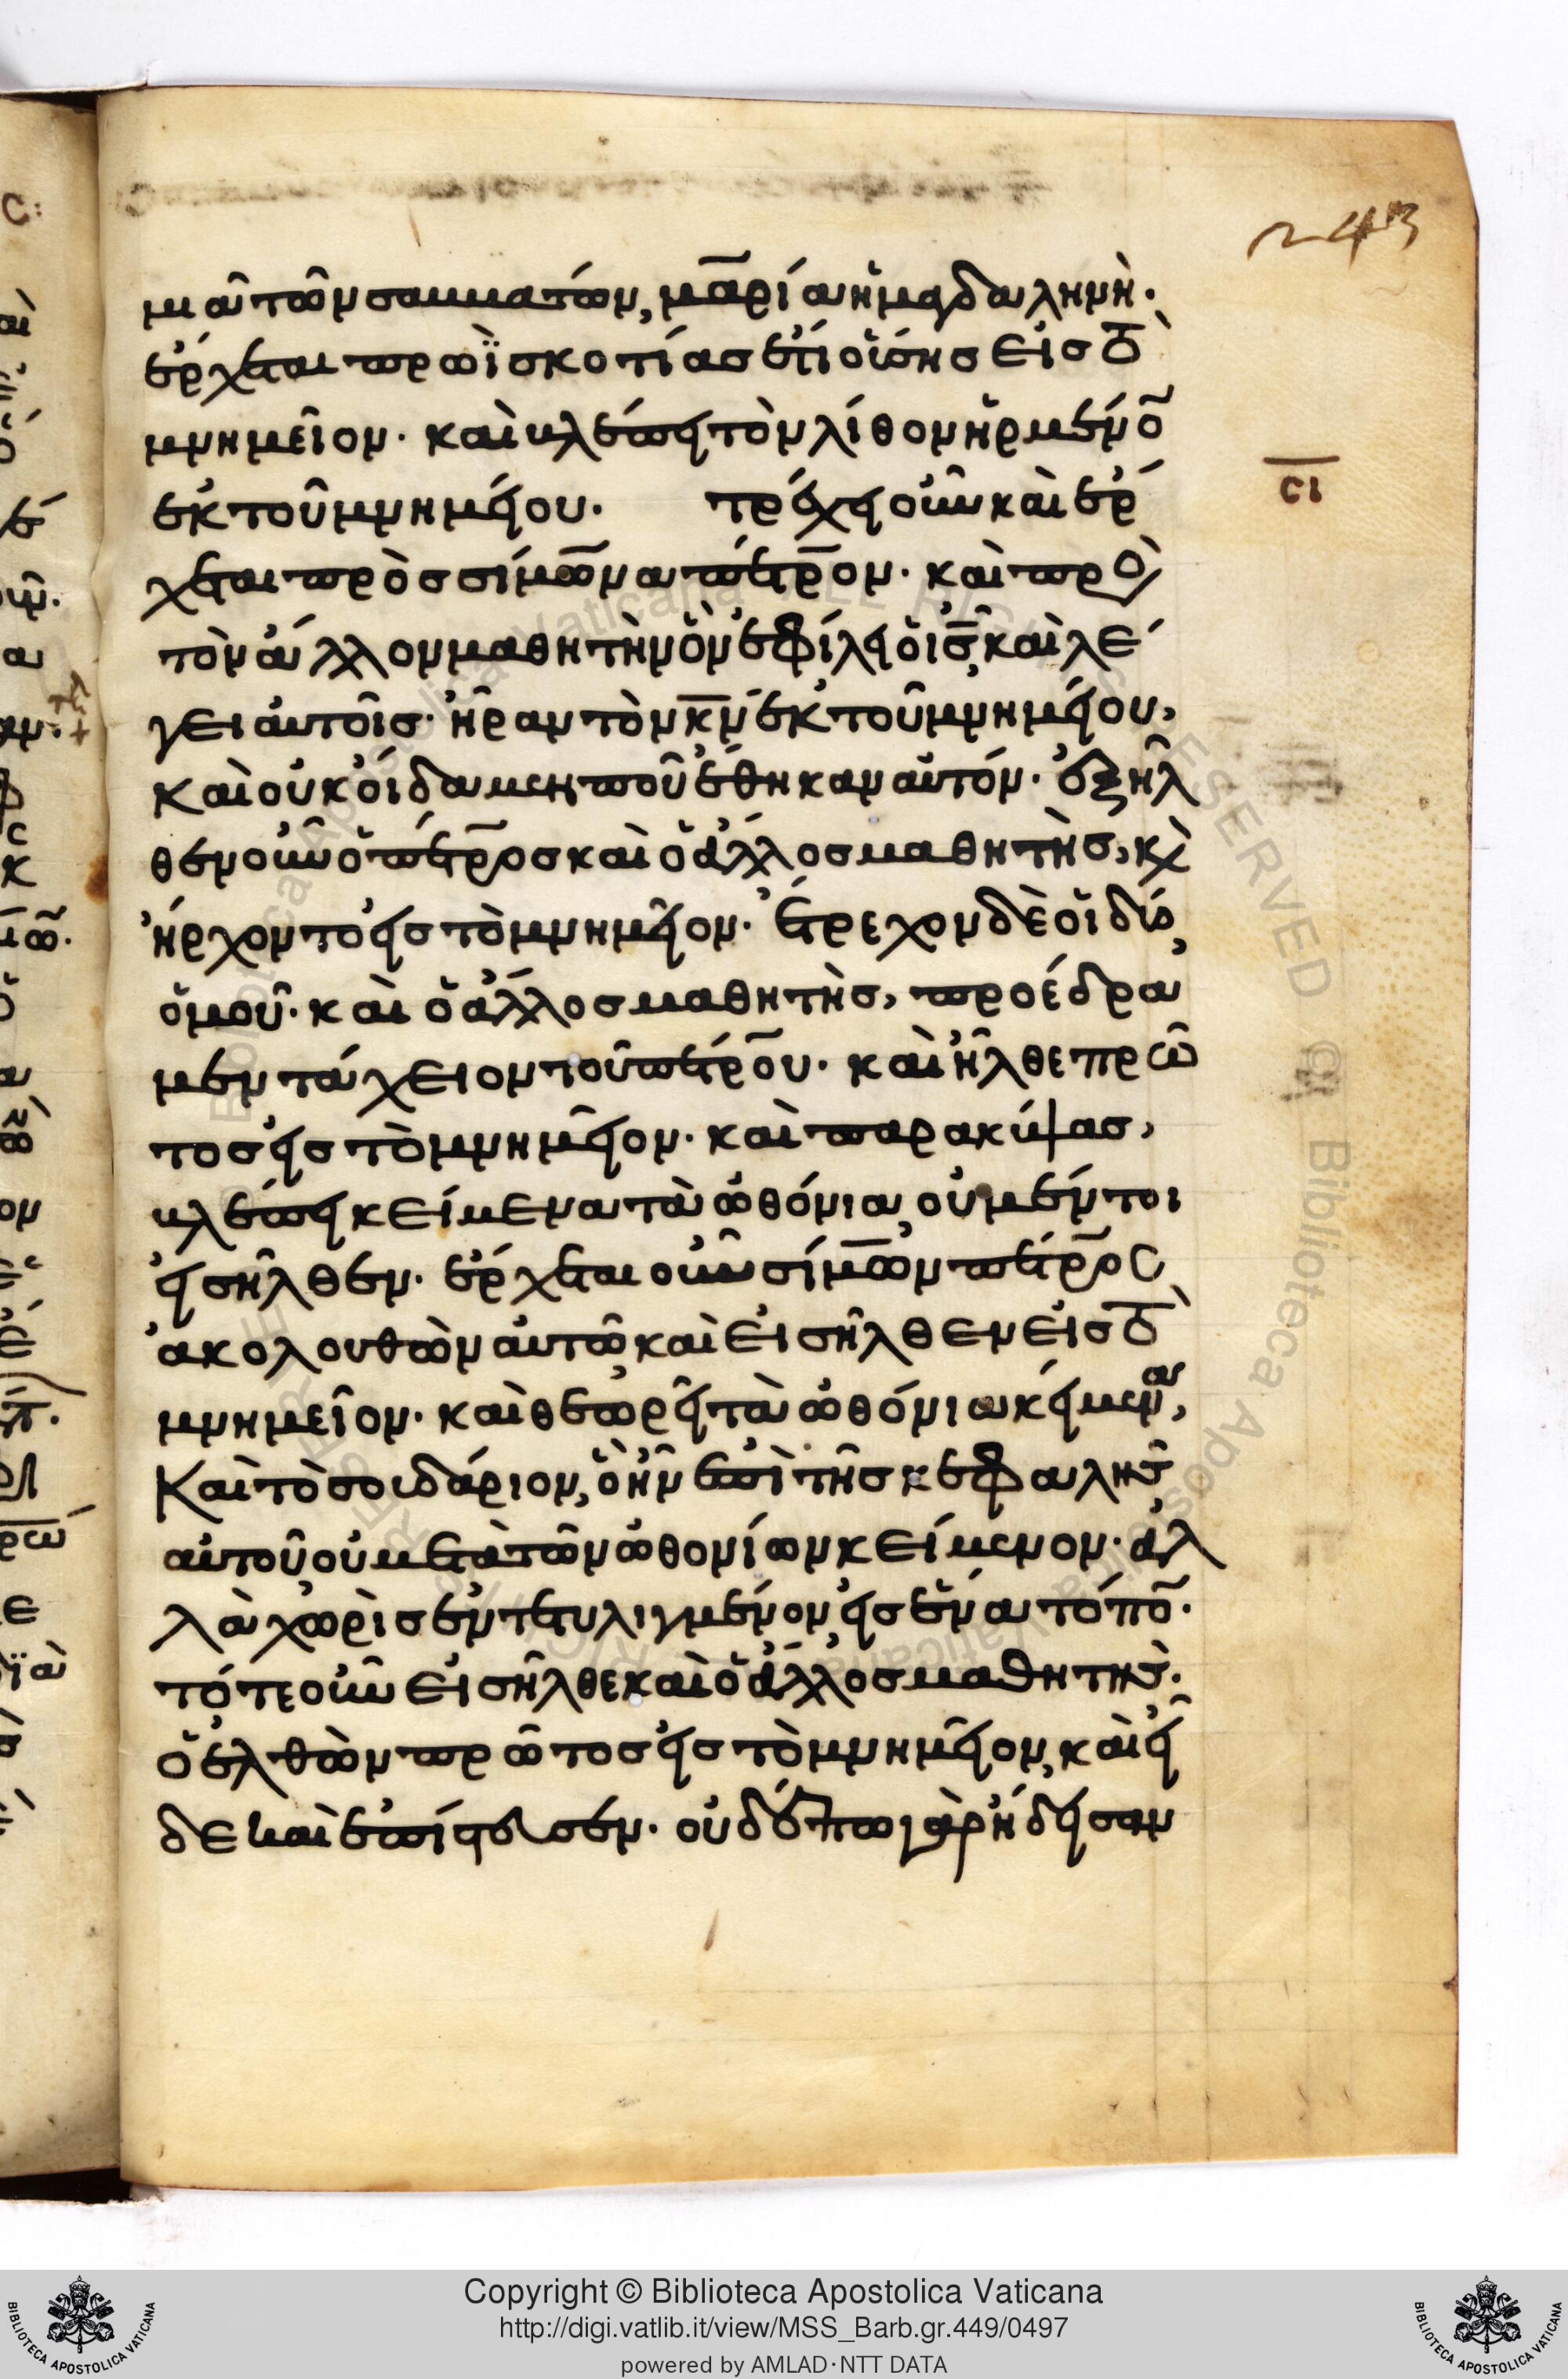 243
μιᾷ τῶν σαββάτων, μαρία ἡ μαγδαληνὴ·
ἔρχεται πρωῒ σκοτίας ἔτι οὔσης εἰς τὸ
μνημεῖον· καὶ βλέπει τὸν λίθον ἠρμένον
ἐκ τοῦ μνημείου· τρέχει οὖν καὶ ἔρ
χεται πρὸς σίμωνα πέτρον· καὶ πρὸς
τὸν ἄλλον μαθητὴν ὃν ἐφίλει ὁ ις̅ καὶ λέ
ςι
γει αὐτοῖς· ἦραν τὸν κ̅ν̅ ἐκ τοῦ μνημείου,
καὶ οὐκ οἴδαμεν ποῦ ἔθηκαν αὐτόν· ἐξῆλ
θεν οὖν ὁ πέτρος καὶ ὁ ἄλλος μαθητὴς, κὶ
ἤρχοντο εἰς τὸ μνημεῖον· ἔτρεχον δὲ οἱ δύο
ὁμοῦ· καὶ ὁ ἄλλος μαθητὴς, προέδρα
μεν τάχειον τοῦ πέτρου· καὶ ἦλθε πρῶ
τος εἰς τὸ μνημεῖον· καὶ παρακύψας,
βλέπει κείμενα τὰ ὀθόνια οὐ μέντοι
εἰσῆλθεν· ἔρχεται οὖν σίμων πέτρος
ἀκολουθῶν αὐτῶ καὶ εἰσῆλθεν εἰς τὸ
μνημεῖον· καὶ θεωρεῖ τὰ ὀθόνια κείμενα,
Καὶ τὸ σουδάριον, ὃ ἦν ἐπὶ τῆς κεφαλῆς
αὐτοῦ οὐ μετὰ τῶν ὀθονίων κείμενον· ἀλ
λὰ χωρὶς ἐντετυλιγμένον εἰς ἕνα τόπον·
τότε οὖν εἰσῆλθε καὶ ὁ ἄλλος μαθητὴς·
ὁ ἐλθὼν πρῶτος εἰς τὸ μνημεῖον, καὶ εἶ
δε καὶ ἐπίστευσεν· οὐδέπω γὰρ ἤδεισαν
Copyright © Biblioteca Apostolica Vaticana
http://digi.vatlib.it/view/MSS_Barb.gr.449/0497
powered by AMLAD·NTT DATA
BIBLIOTECA APOSTOLICA VATICANA
BIBLIOTECA APOSTOLICA VATICANA